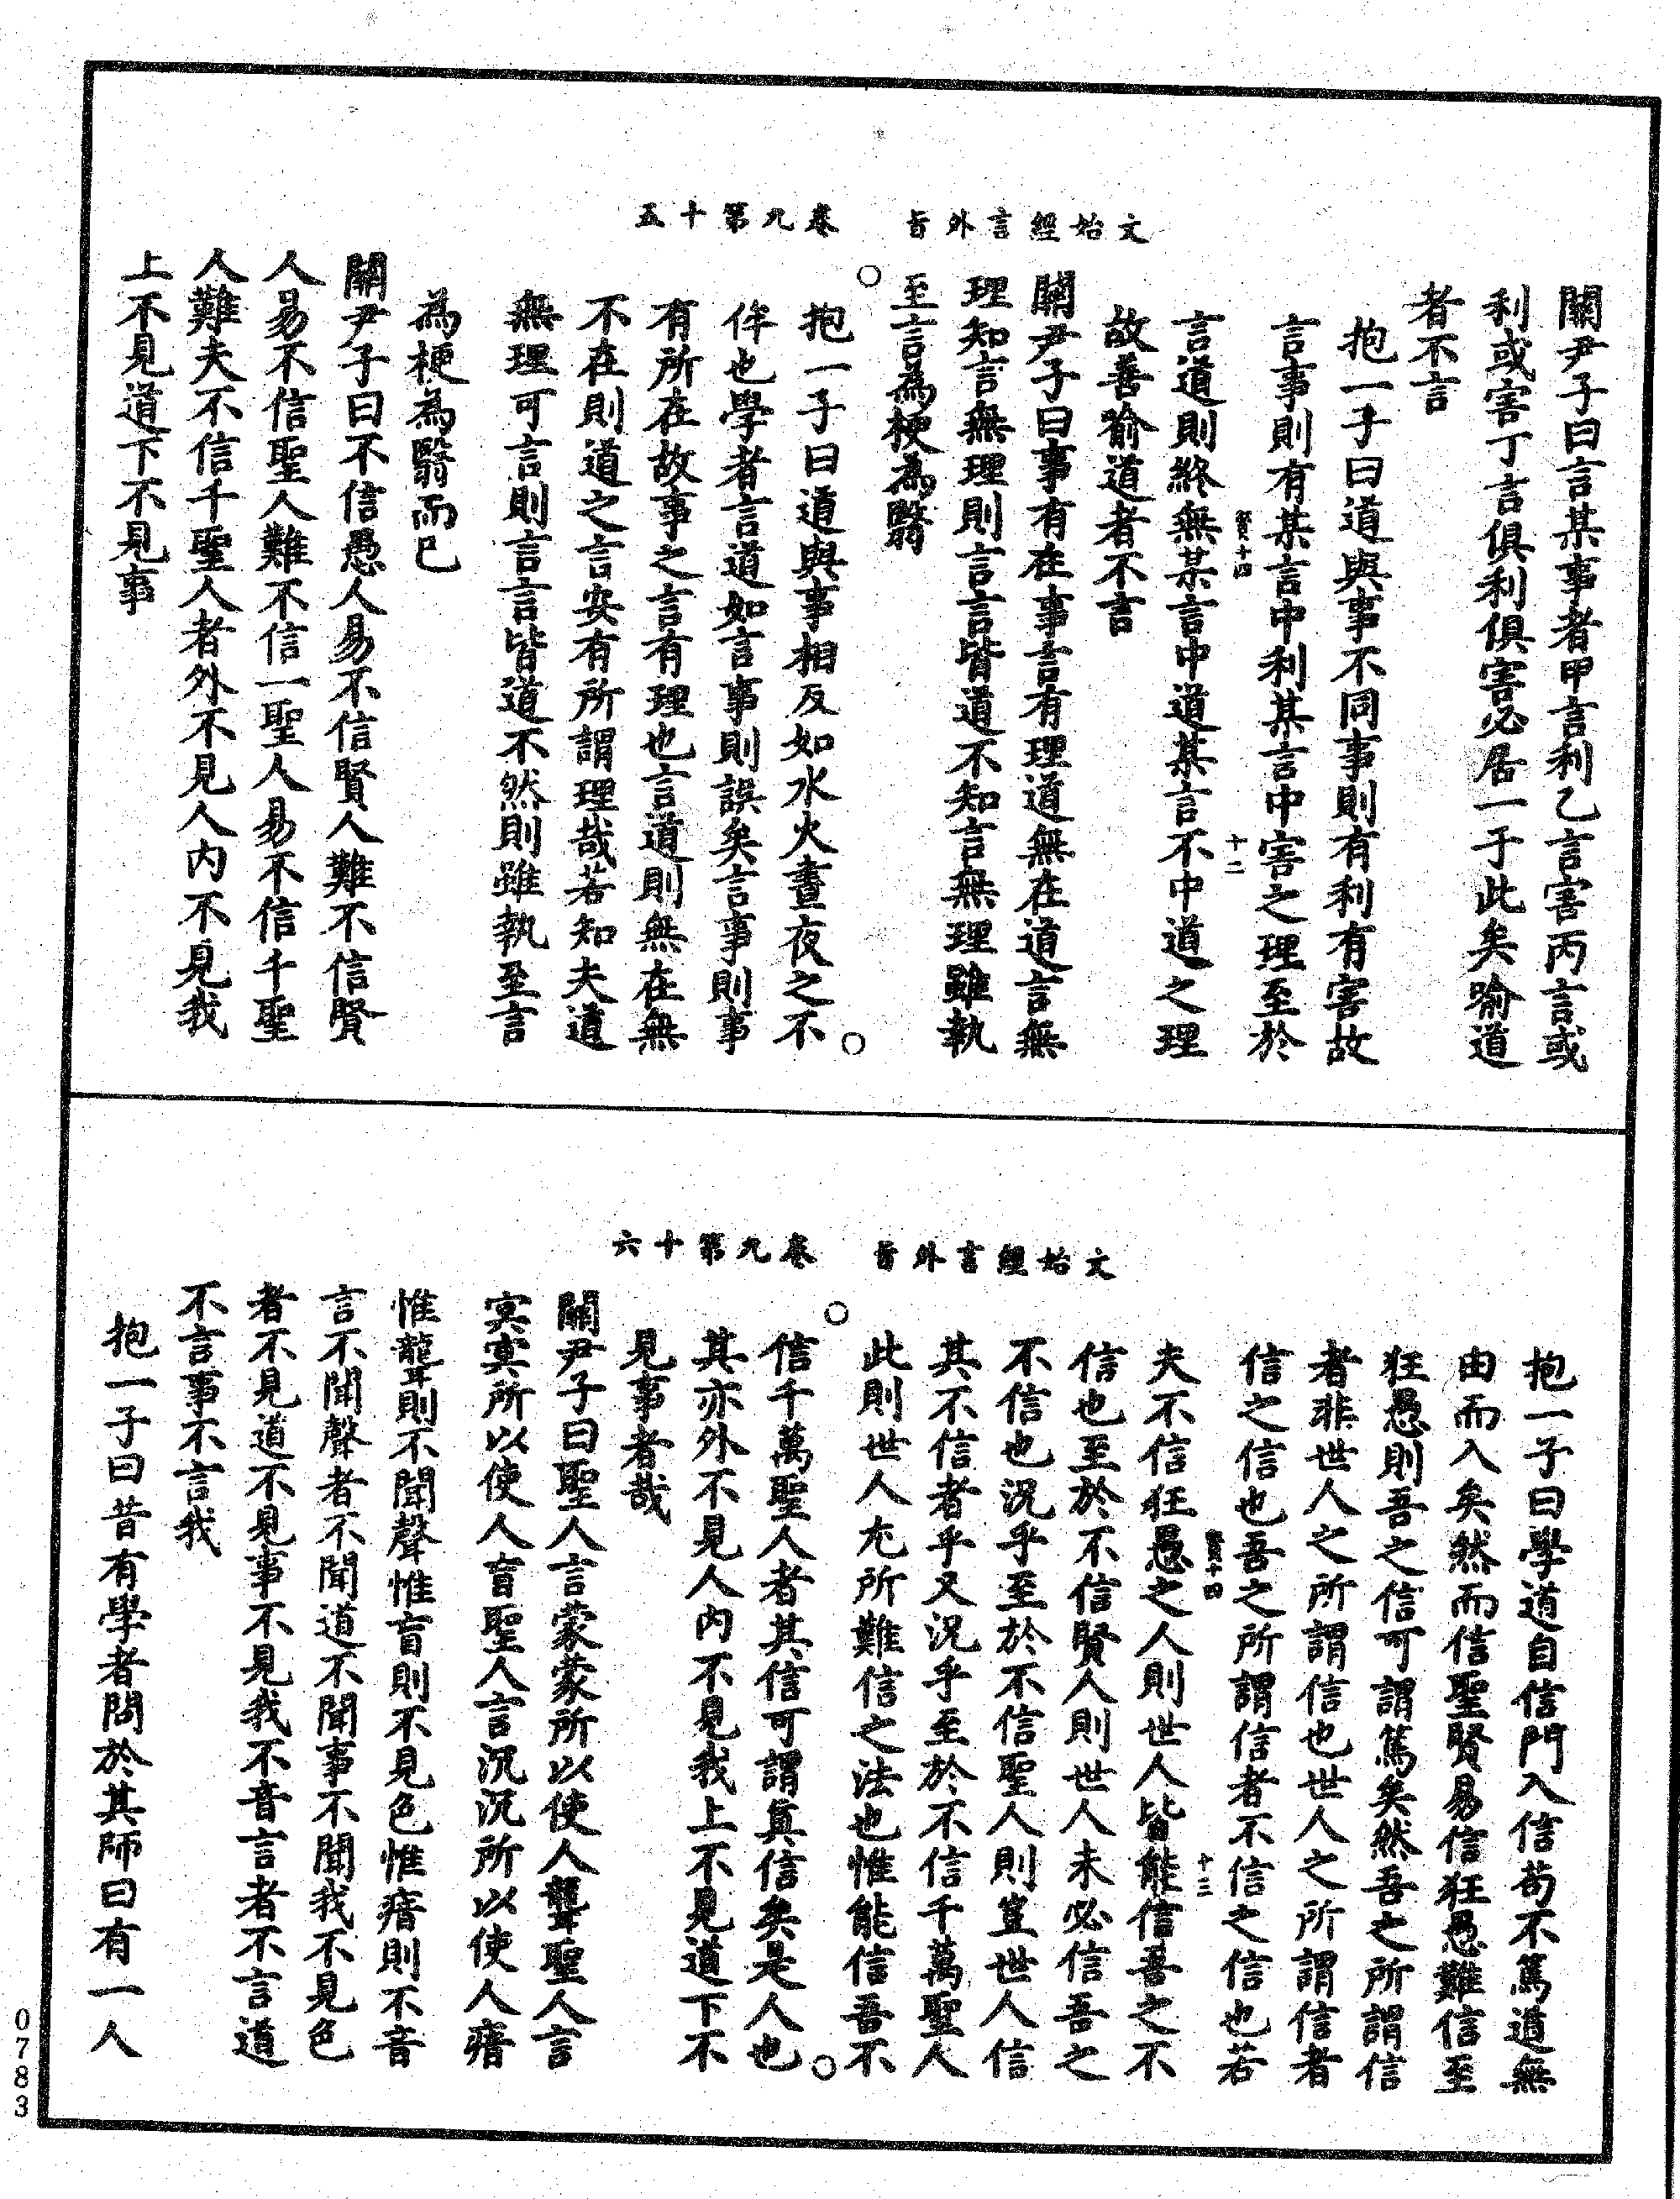 關尹子曰言某事者甲言利乙言害丙言或
利或害丁言俱利俱害必居一于此矣喻道
者不言
抱一子曰道與事不同事則有利有害故
言事則有某言中利某言中害之理至於
賢十四 十二
言道則終無某言中道某言不中道之理
故善喻道者不言
關尹子曰事有在事言有理道無在道言無
理知言無理則言言皆道不知言無理雖執
至言為梗為翳
文始經言外旨 卷九第十五
抱一子曰道與事相反如水火晝夜之不
侔也學者言道如言事則誤矣言事則事
有所在故事之言有理也言道則無在無
不在則道之言安有所謂理哉若知夫道
無理可言則言言皆道不然則雖執至言
為梗為翳而已
關尹子曰不信愚人易不信賢人難不信賢
人易不信聖人難不信一聖人易不信千聖
人難夫不信千聖人者外不見人內不見我
上不見道下不見事
抱一子曰學道自信門入信苟不篤道無
由而入矣然而信聖賢易信狂愚難信至
狂愚則吾之信可謂篤矣然吾之所謂信
者非世人之所謂信也世人之所謂信者
信之信也吾之所謂信者不信之信也若
賢十四 十三
夫不信狂愚之人則世人皆能信吾之不
信也至於不信賢人則世人未必信吾之
不信也況乎至於不信聖人則豈世人信
其不信者乎又況乎至於不信千萬聖人
此則世人尤所難信之法也惟能信吾不
文始經言外旨 卷九第十六
信千萬聖人者其信可謂真信矣是人也
其亦外不見人內不見我上不見道下不
見事者哉
關尹子曰聖人言蒙蒙所以使人聾聖人言
冥冥所以使人盲聖人言沉沉所以使人瘖
惟聾則不聞聲惟盲則不見色惟瘖則不音
言不聞聲者不聞道不聞事不聞我不見色
者不見道不見事不見我不音言者不言道
不言事不言我
抱一子曰昔有學者問於其師曰有一人
0783